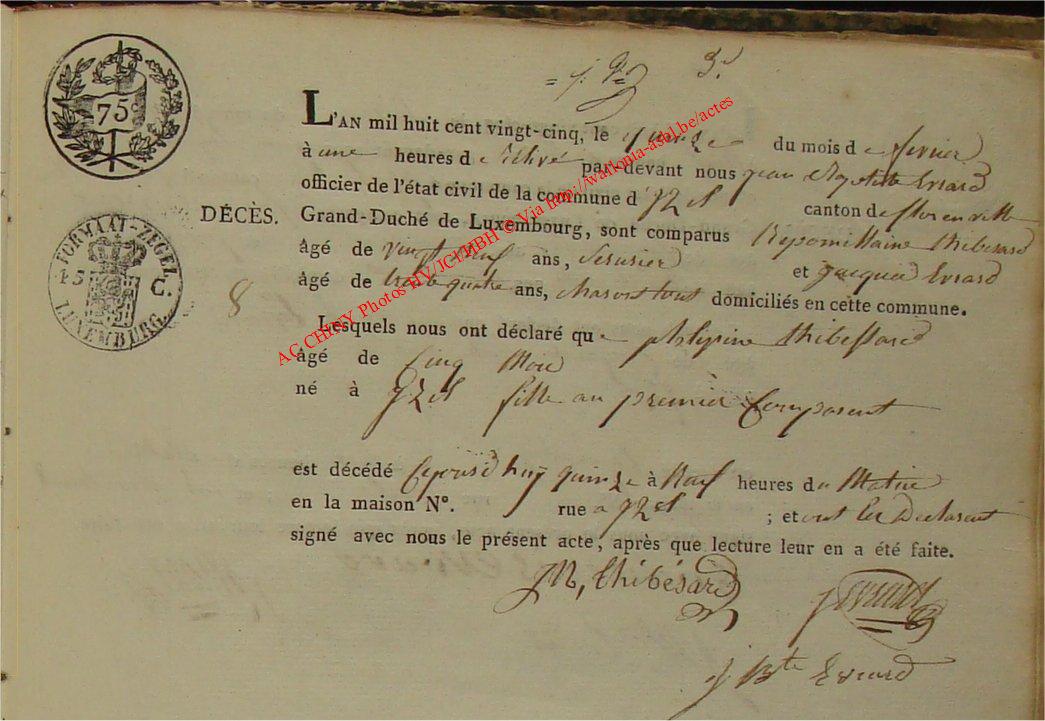 75 C
3.
L'AN mil huit cent vingt-cinq, le quinze du mois de fevrier
à une heures de relevé par-devant nous jean Baptiste Evrard
officier de l'état civil de la commune d'izel canton de florenville
DÉCÈS. Grand-Duché de Luxembourg, sont comparus Thibesard
âgé de vingt neuf ans, Serusier et jacques Evrard
âgé de trente quatre ans, domiciliés en cette commune.
8
Lesquels nous ont déclaré que Thibessard
âgé de Cinq Mois
né à izel fille au premier Comparent
est décédé quinze à Neuf heures du Matin
en la maison N°. rue a izel ; et ont les Declarent
signé avec nous le présent acte, après que lecture leur en a été faite.
JN, Thibésard
J Evrard
j Bte Evrard
FORMAAT-ZEGEL.
15 C
LUXEMBURG.
AC CHINY Photos HV/JCI/HBH © Via http://wallonia-asbl.be/actes